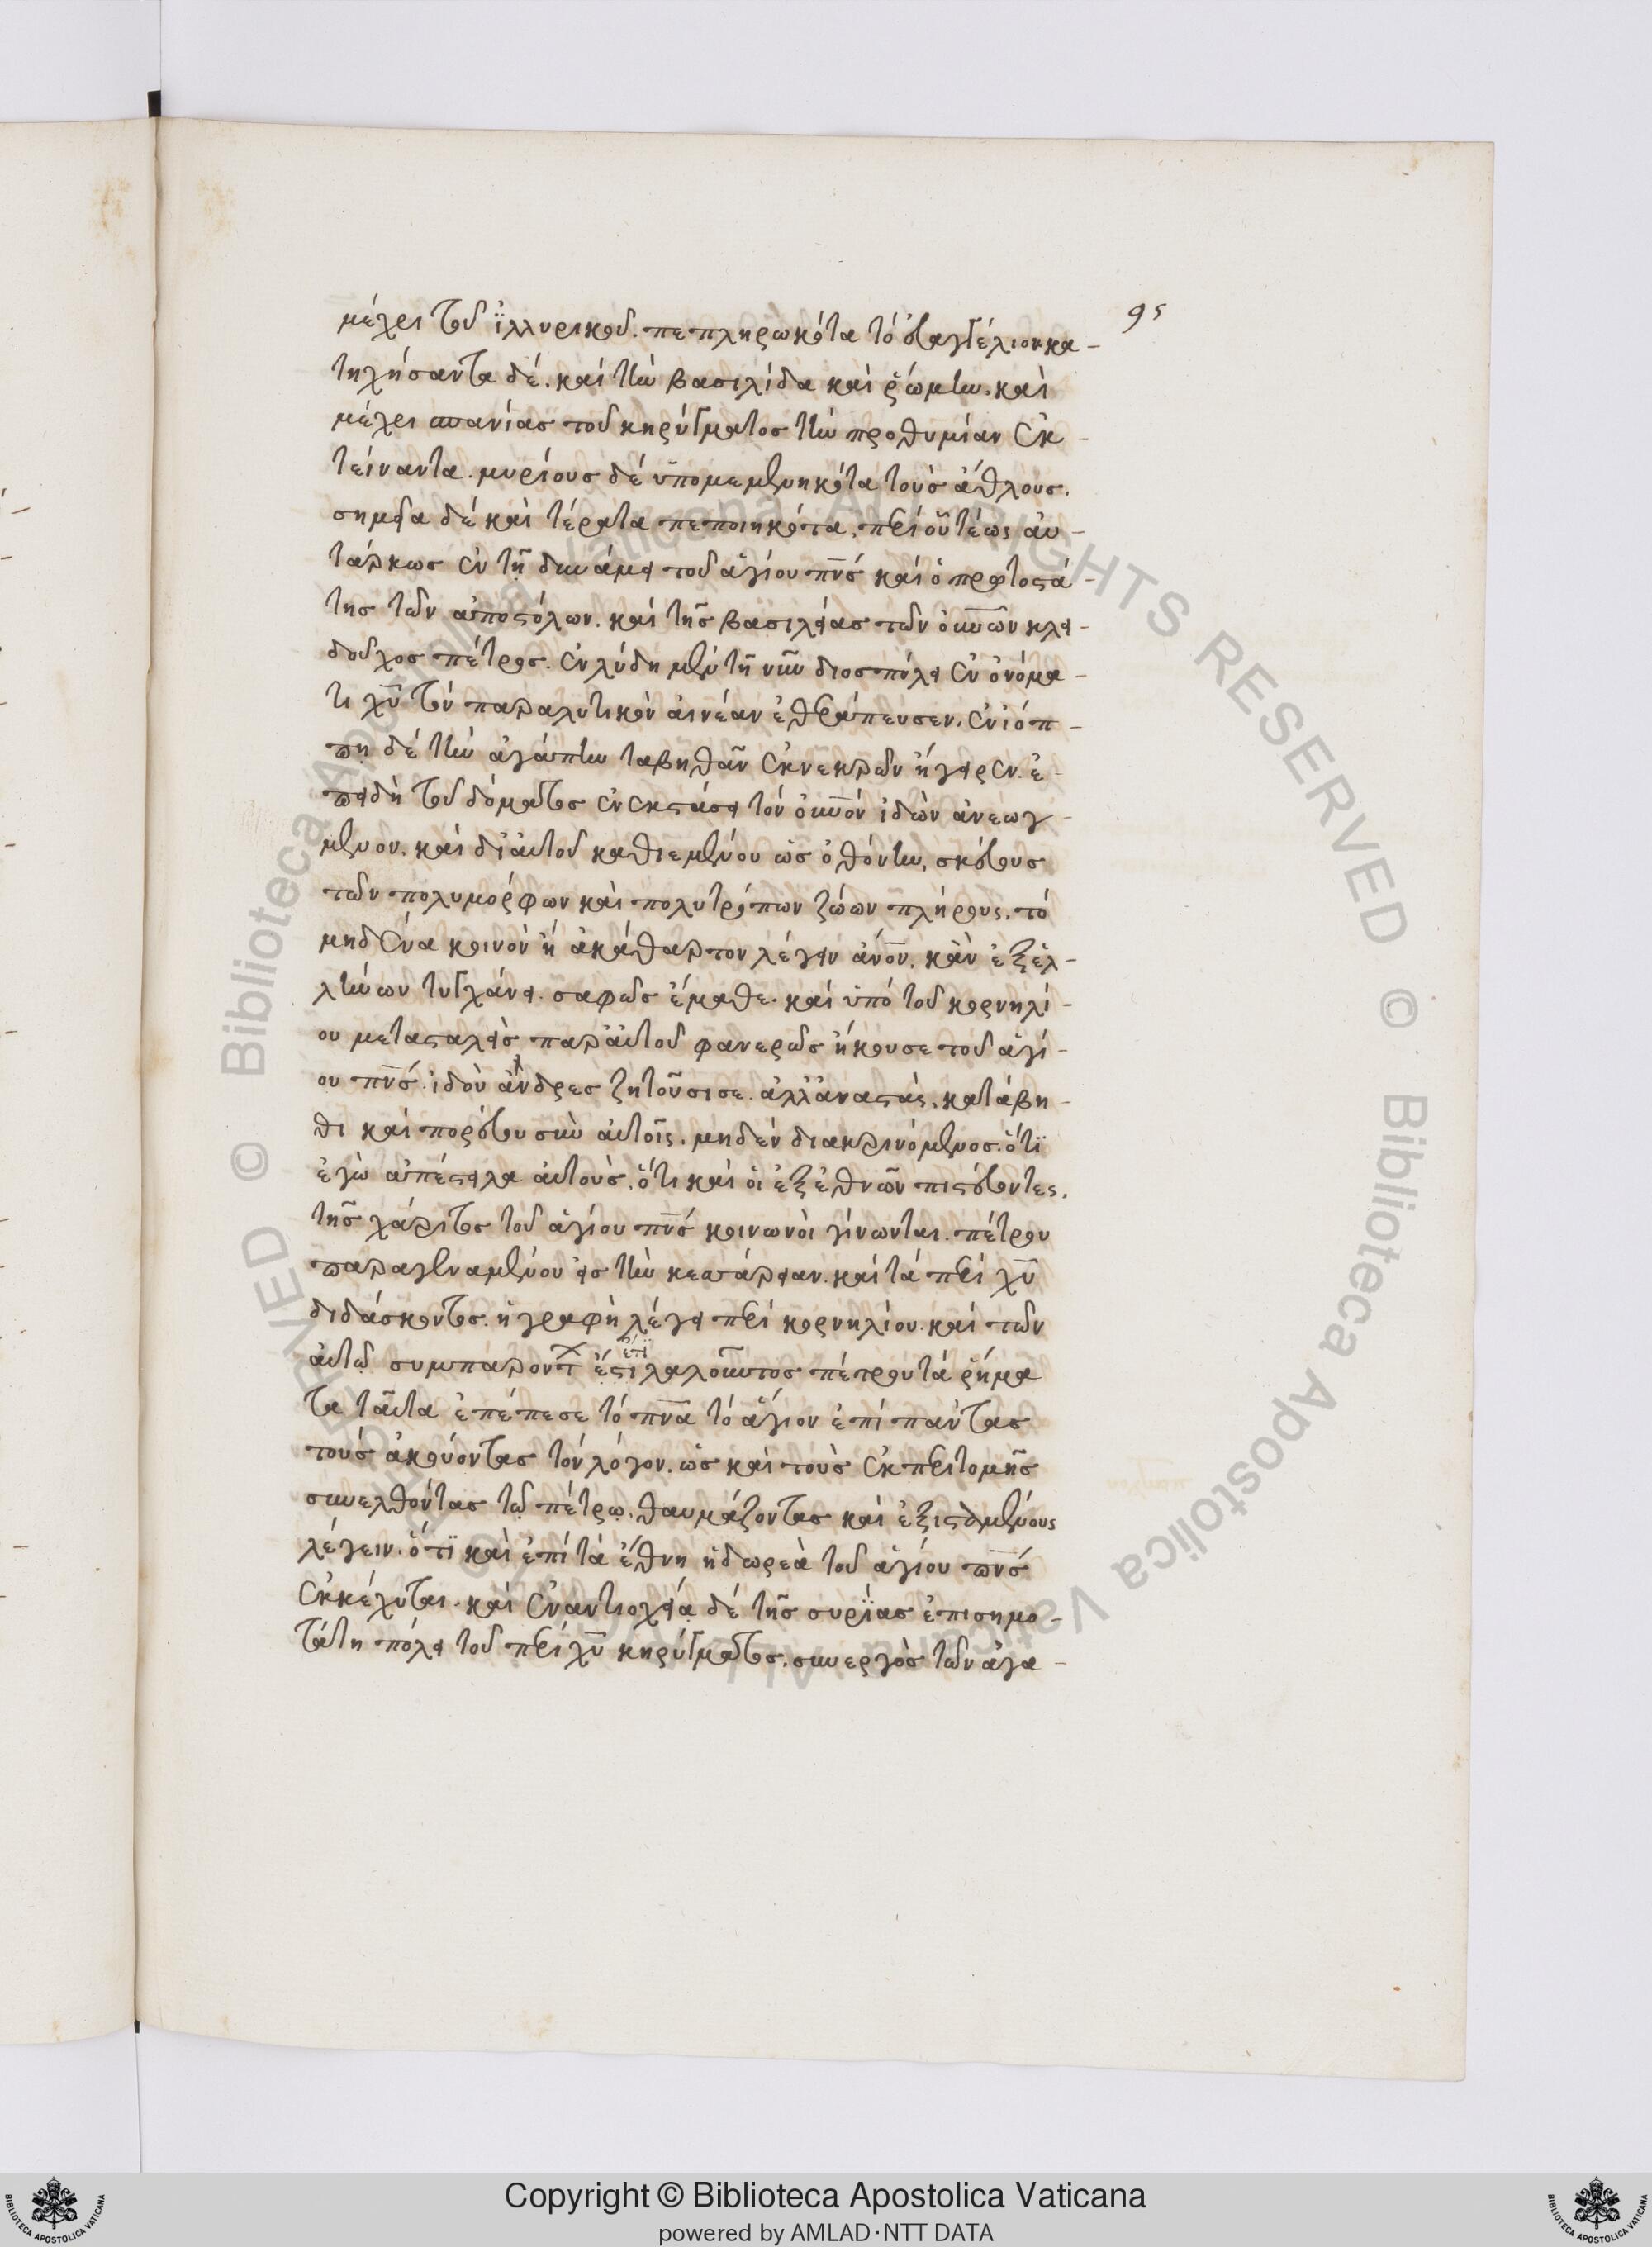 95
μέχρι τοῦ ϊλλυρικοῦ. πεπληρωκότα τὸ ευαγγέλιον κα-
τηχήσαντα δέ. καὶ τὴν βασιλίδα καὶ ῥώμην. καὶ
μέχρι σπανίας τοῦ κηρύγματος τὴν προθυμίαν ἐκ-
τείναντα. μυρίους δὲ ὑπομεμενηκότα τοὺς ἄθλους.
σημεῖα δὲ καὶ τέρατα πεποιηκότα. περὶ οὗ τέως αυ-
τάρκως ἐν τῇ δυνάμει τοῦ ἁγίου πν̅ς καὶ ὁ πρωτοστά-
της τῶν ἀποστόλων. καὶ τῆς βασιλείας τῶν ου̅νων κλει-
δοῦχος πέτρος. ἐν λύδη μὲν τῇ νῦν διοσπόλει ἐν ὀνόμα-
τι χυ̅ τὸν παραλυτικὸν αἰνέαν ἐθεράπευσεν. ἐν ϊόπ-
πῃ δὲ τὴν ἀγάπην ταβηθᾶν ἐκ νεκρῶν ἤγειρεν. ἐ-
πειδὴ τοῦ δόματος ἐν ἐκστάσει τὸν ου̅νον ἰδὼν ἀνεωγ-
μένον. καὶ δι' αὐτοῦ καθιεμένου ὡς ὀθόνην, σκεύους
τῶν πολυμόρφων καὶ πολυτρόπων ζώων πλήρους. τὸ
μηδένα κοινὸν ἢ ἀκάθαρτον λέγειν ἄν̅ον. κἂν ἐξ ἑλ-
λήνων τυγχάνει. σαφῶς ἔμαθε. καὶ ὑπὸ τοῦ κορνηλί-
ου μετασταλεὶς παρ' αὐτοῦ φανερῶς ἤκουσε τοῦ ἁγί-
ου πν̅ς. ἰδοὺ ἄνδρες ζητοῦσι σε. ἀλλ' ἀναστὰς, κατάβη-
θι καὶ πορεύου σὺν αὐτοῖς. μηδὲν διακρινόμενος. ὅτϊ
ἐγὼ ἀπέστειλα αὐτοὺς. ὅτι καὶ οἱ ἐξ ἐθνῶν πιστεύοντες.
τῆς χάριτος τοῦ ἁγίου πν̅ς κοινωνοὶ γίνωνται. πέτρου
παραγεναμένου εἰς τὴν κεσάρειαν. καὶ τὰ περὶ χυ̅
διδάσκοντος. ἡ γραφὴ λέγει περὶ κορνηλίου. καὶ τῶν
αὐτῷ συμπαροντ ἔστι ἔτϊ λαλοῦντος πέτρου τὰ ῥήμα
τα ταῦτα ἐπέπεσε τὸ πν̅α τὸ ἅγιον ἐπὶ πάντας
τοὺς ἀκούοντας τὸν λόγον. ὡς καὶ τοὺς ἐκ περιτομῆς
συνελθόντας τῷ πέτρῳ. θαυμάζοντας καὶ ἐξισταμένους
λέγειν. ὅτϊ καὶ ἐπὶ τὰ ἔθνη ἡ δωρεὰ τοῦ ἁγίου πν̅ς
ἐκκέχυται. καὶ ἐν ἀντιοχείᾳ δὲ τῆς συρΐας ἐπισημο-
τάτη πόλει τοῦ περὶ χυ̅ κηρύγματος. συνεργὸς τῶν ἀγα-
Copyright © Biblioteca Apostolica Vaticana
powered by AMLAD·NTT DATA